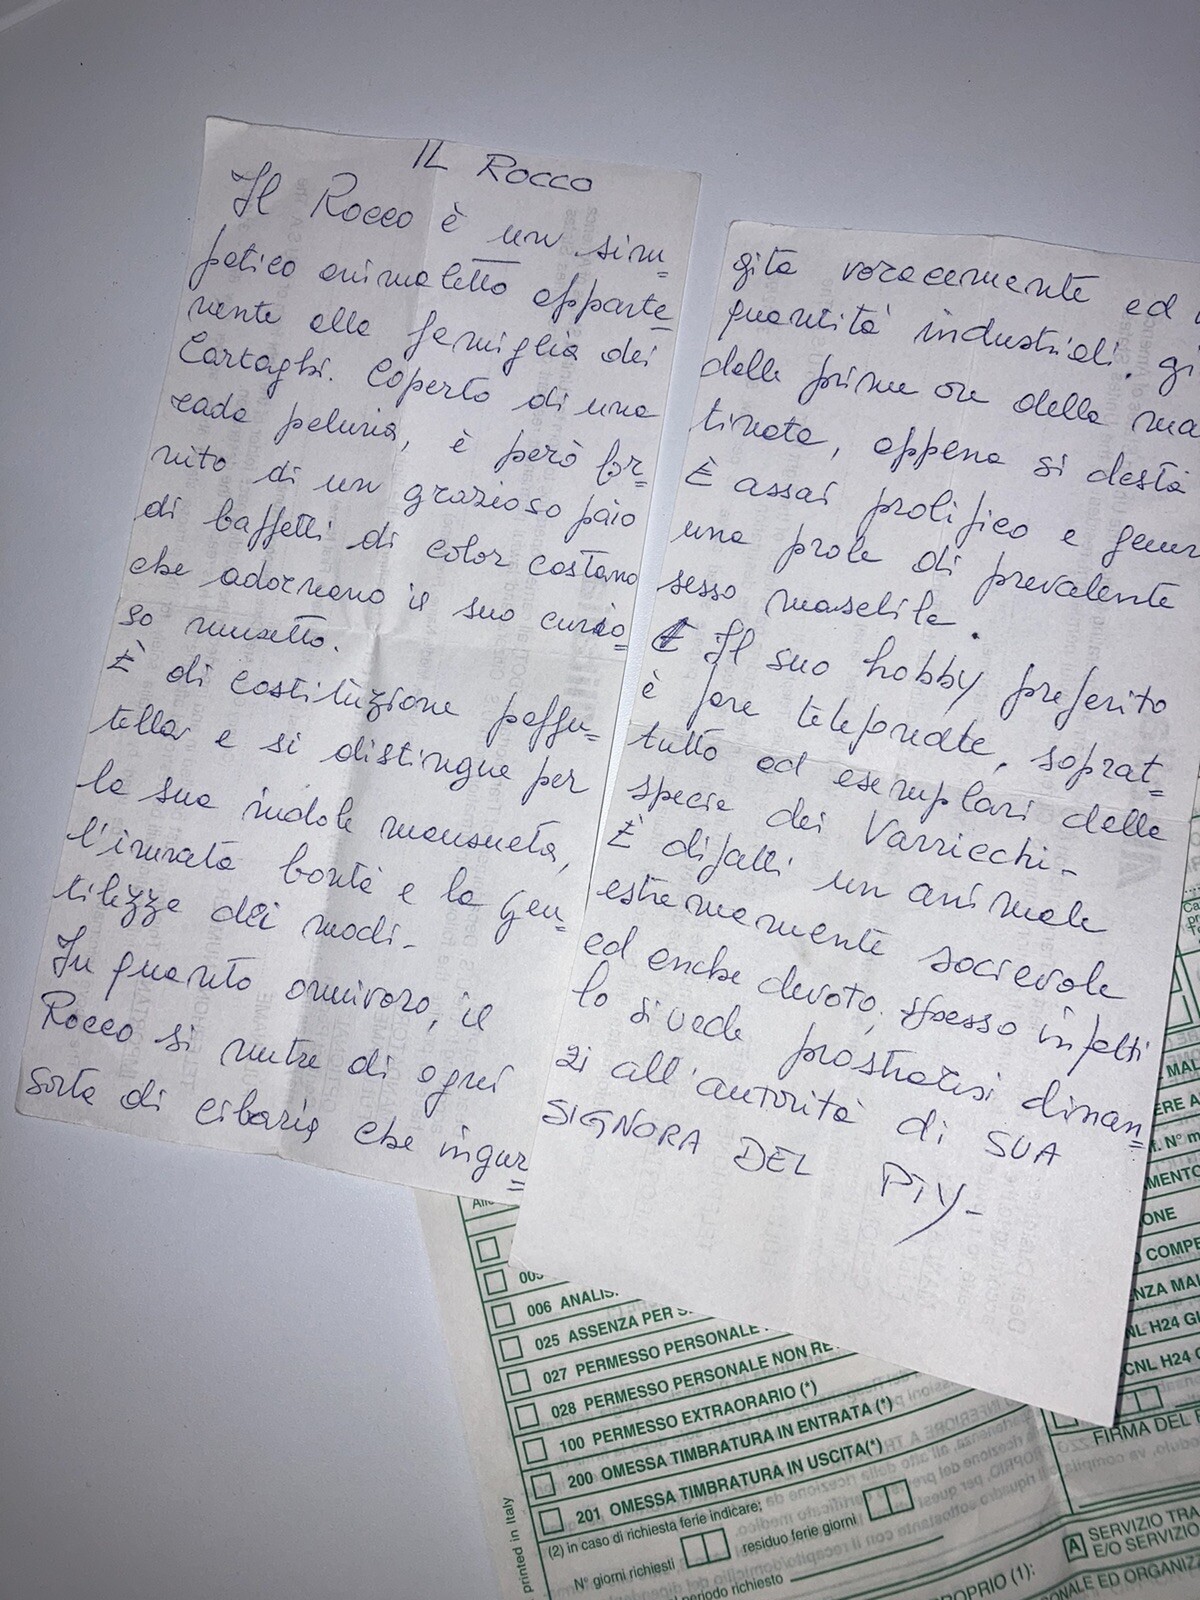 IL ROCCO
Il Rocco è un sim=
patico animaletto apparte=
nente alla famiglia dei
Cartaghi. Coperto di una
rada peluria, è però for=
nito di un grazioso paio
di baffetti di color castano
che adornano il suo curio=
so musetto.
È di costituzione paffu=
tella e si distingue per
la sua indole mansueta,
l'innata bontà e la gen=
tilezza dei modi-
In quanto onnivoro, il
Rocco si nutre di ogni
sorta di cibaria che ingur=
gita voracemente ed
quantità industriali, gi
dalle prime ore della ma
tinata, appena si desta
È assai prolifico e gener
una prole di prevalente
sesso maschile.
Il suo hobby preferito
è fare telefonate, soprat=
tutto ad esemplari della
specie dei Varriechi-
È difatti un animale
estremamente socievole
ed anche devoto; spesso infatti
lo si vede prostrarsi dinan=
zi all'autorità di SUA
SIGNORA DEL PIY-
006 ANALIS
025 ASSENZA PER S
027 PERMESSO PERSONALE
028 PERMESSO PERSONALE NON RE
100 PERMESSO EXTRAORARIO (*)
200 OMESSA TIMBRATURA IN ENTRATA (*)
201 OMESSA TIMBRATURA IN USCITA(*)
(2) in caso di richiesta ferie indicare:
N° giorni richiesti
residuo ferie giorni
periodo richiesto
printed in Italy
MAL
ERE A
N° m
MENTO
ONE
COMPE
NZA MAL
NL H24 GI
CNL H24 G
FIRMA DEL
A SERVIZIO TRA
E/O SERVIZIO
OPRIO (1):
ONALE ED ORGANIZ